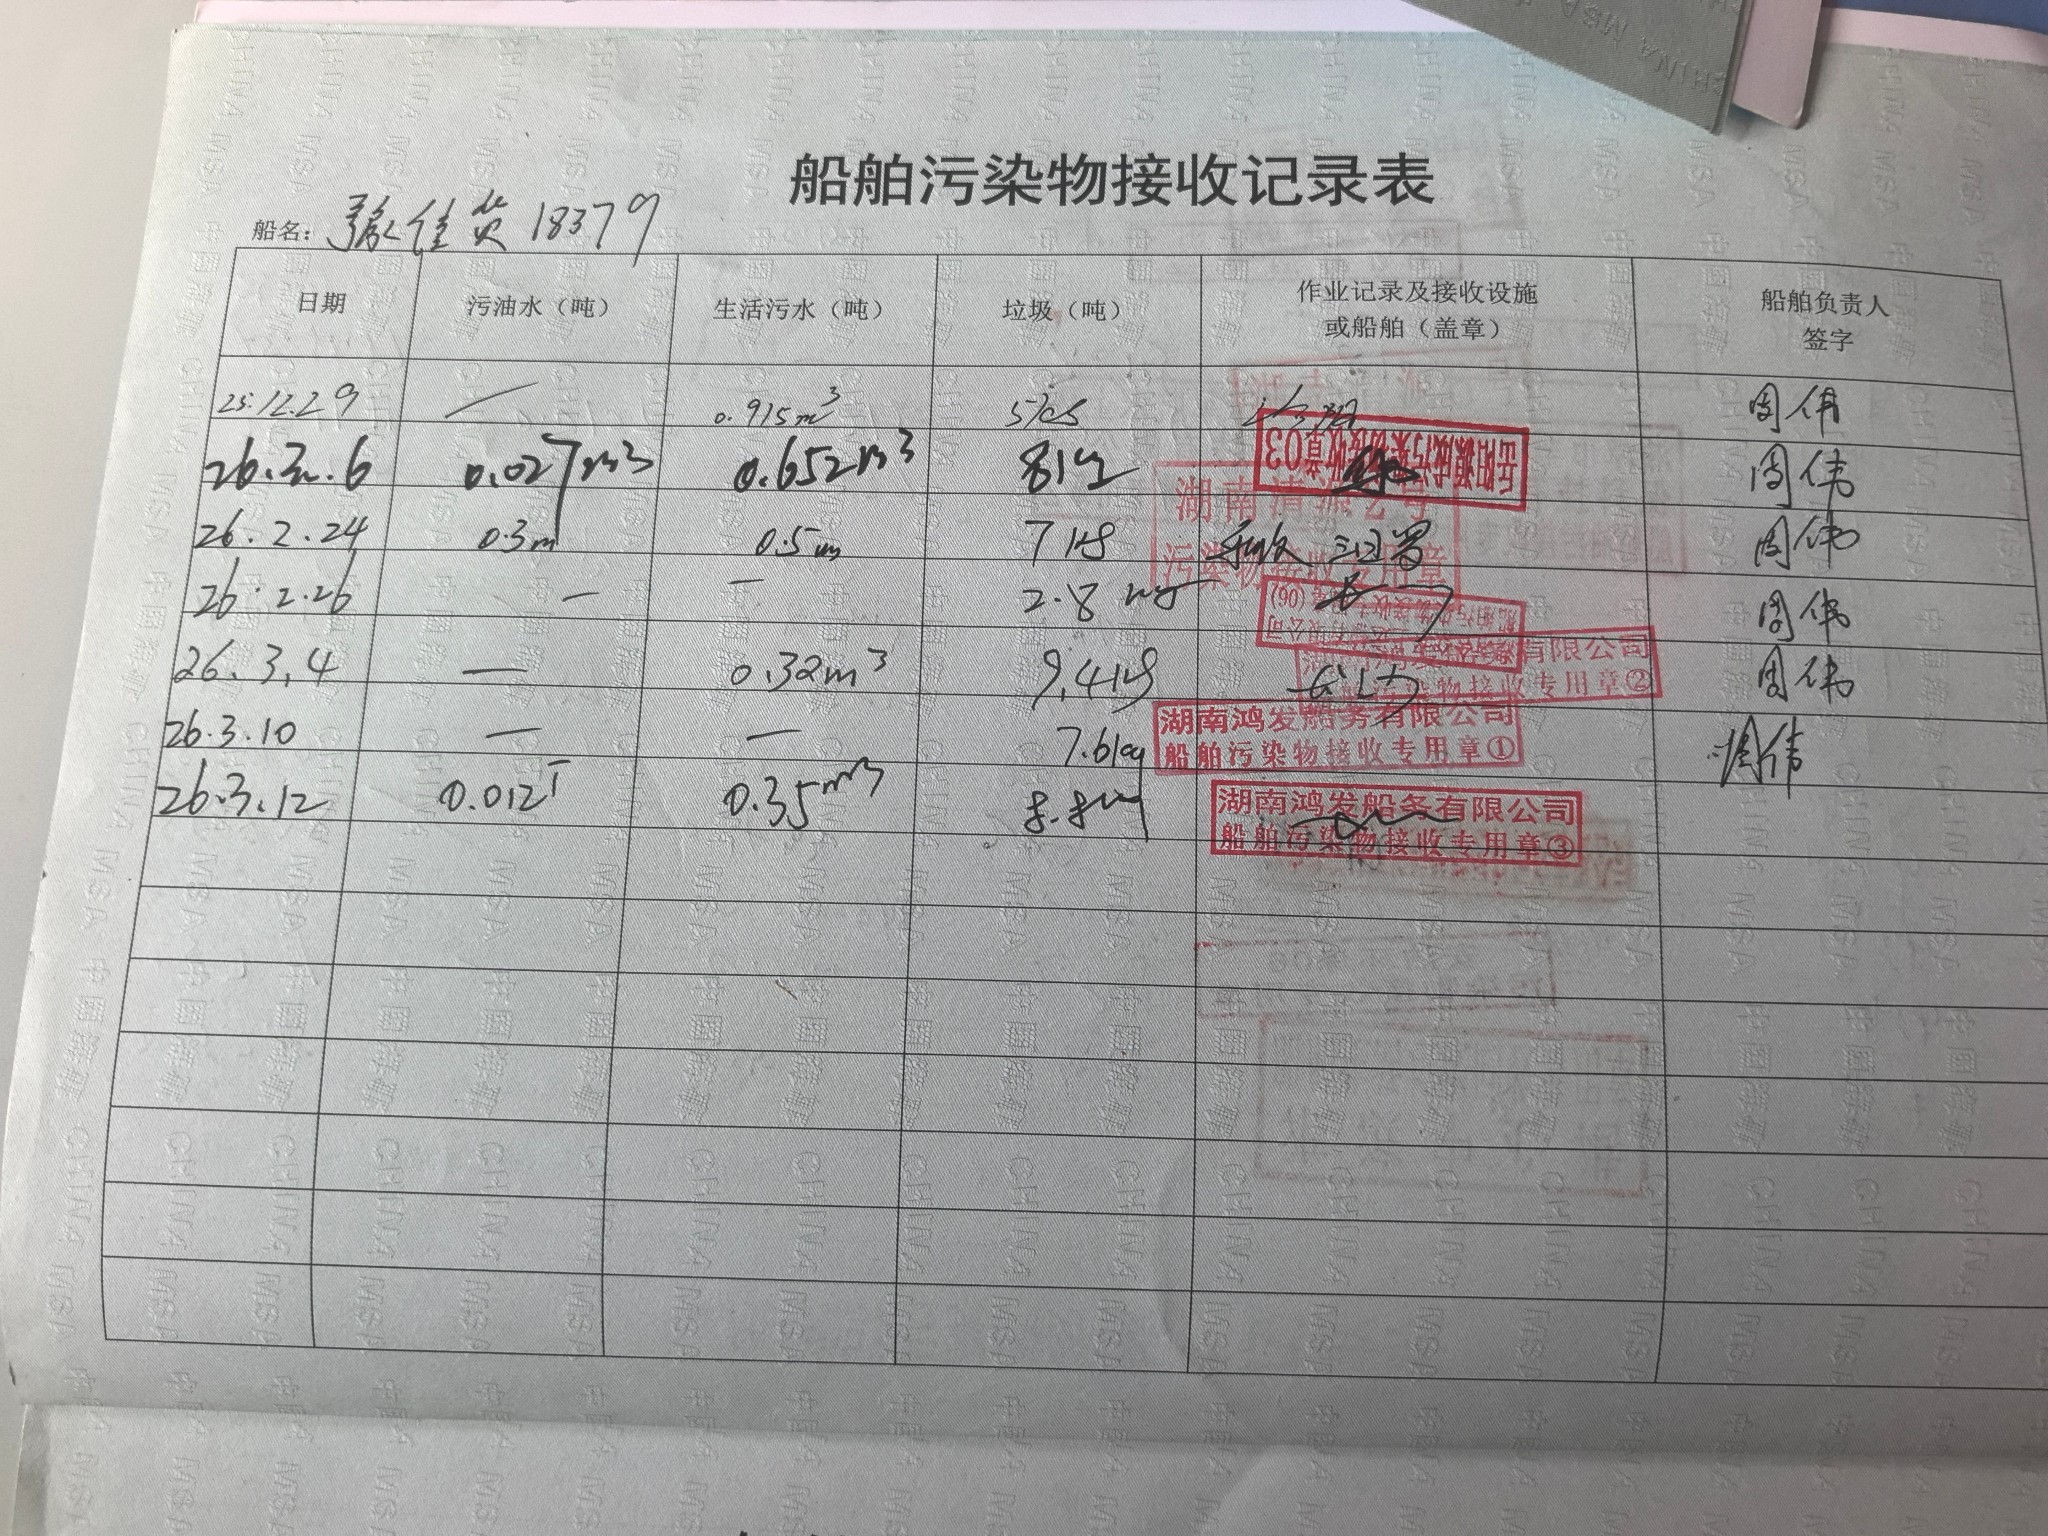 船舶污染物接收记录表
船名: 豫佳货18379
日期 污油水（吨） 生活污水（吨） 垃圾（吨） 作业记录及接收设施或船舶（盖章） 船舶负责人签字
25.12.29 — 0.915m³ 5kg 周伟
26.2.6 0.027m³ 0.652m³ 8kg 岳阳 接收章03 周伟
26.2.24 0.3m 0.5m 7kg 湖南清源 号 污染物接收专用章 周伟
26.2.26 — — 2.8kg (06) 周伟
26.3.4 — 0.32m³ 9.4kg 有限公司 污染物接收专用章② 周伟
26.3.10 — — 7.6kg 湖南鸿发船务有限公司 船舶污染物接收专用章① 周伟
26.3.12 0.012T 0.35m³ 8.8kg 湖南鸿发船务有限公司 船舶污染物接收专用章③
CHINA MSA 中国海事